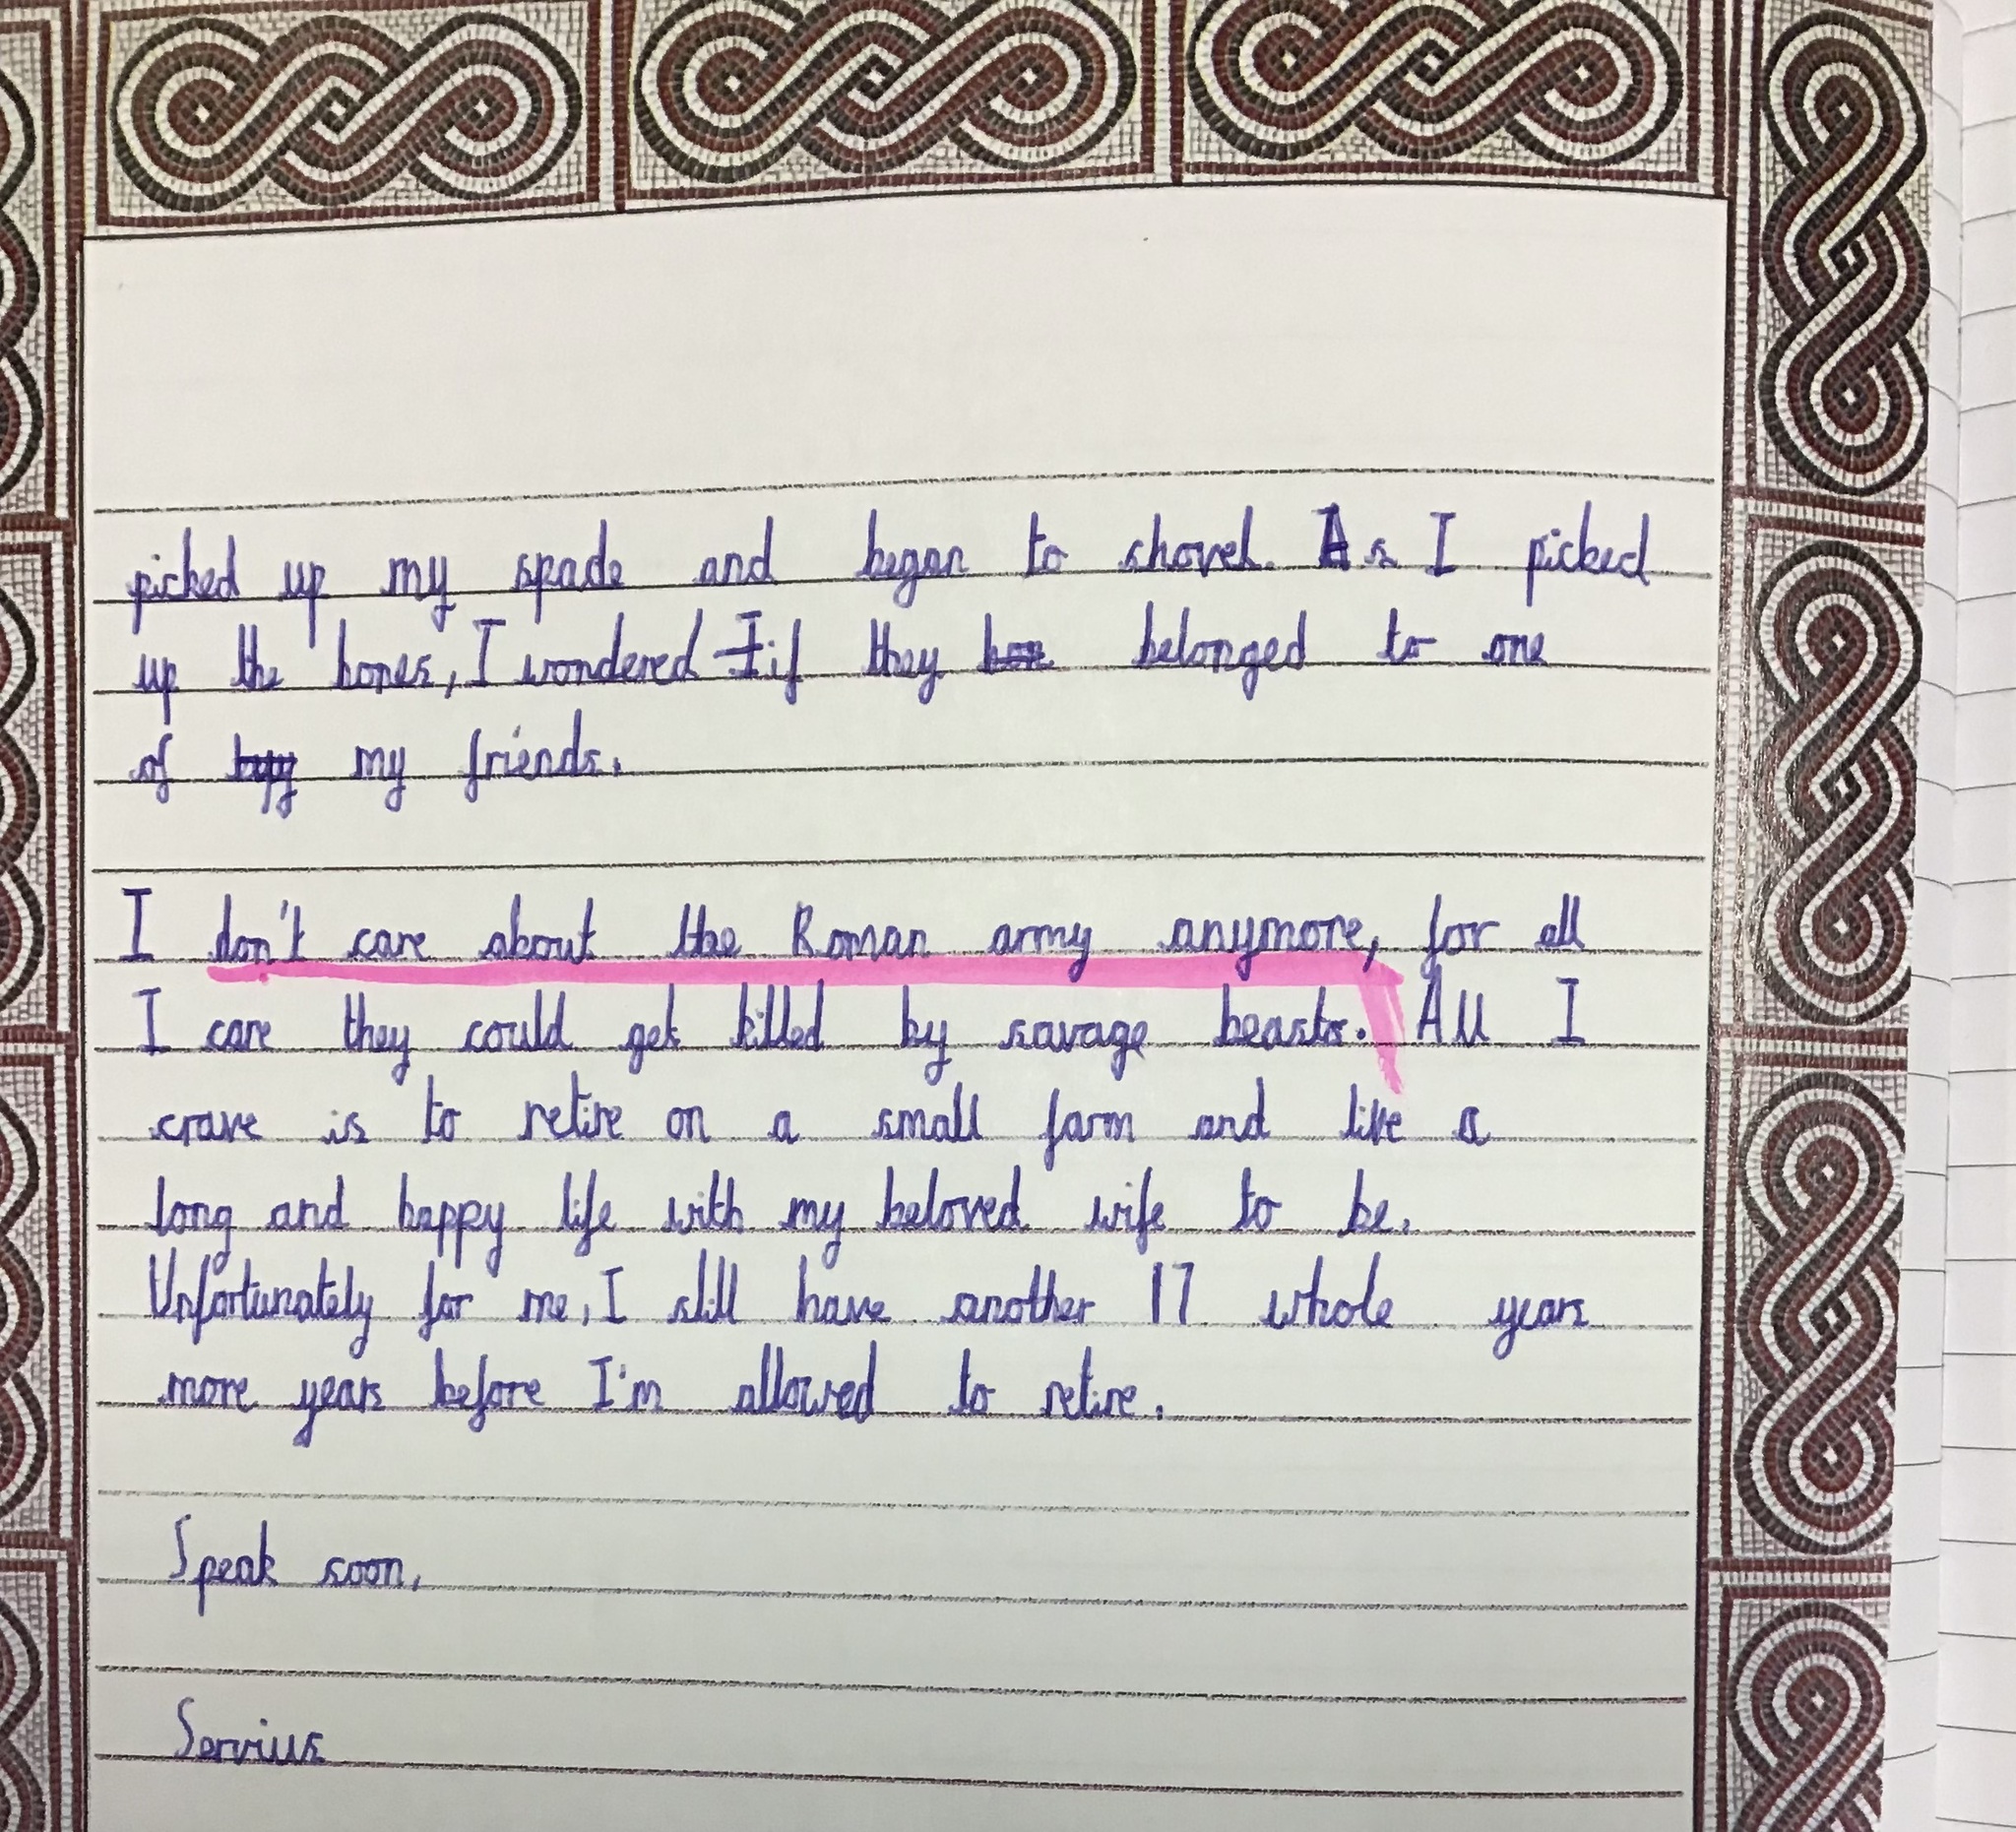 picked up my spade and began to shovel. As I picked
up the bones, I wondered I if they bon belonged to one
of my friends.
I don't care about the Roman army anymore, for all
I care they could get killed by savage beasts. All I
crave is to retire on a small farm and live a
long and happy life with my beloved wife to be.
Unfortunately for me, I still have another 17 whole years
more years before I'm allowed to retire.
Speak soon,
Servius